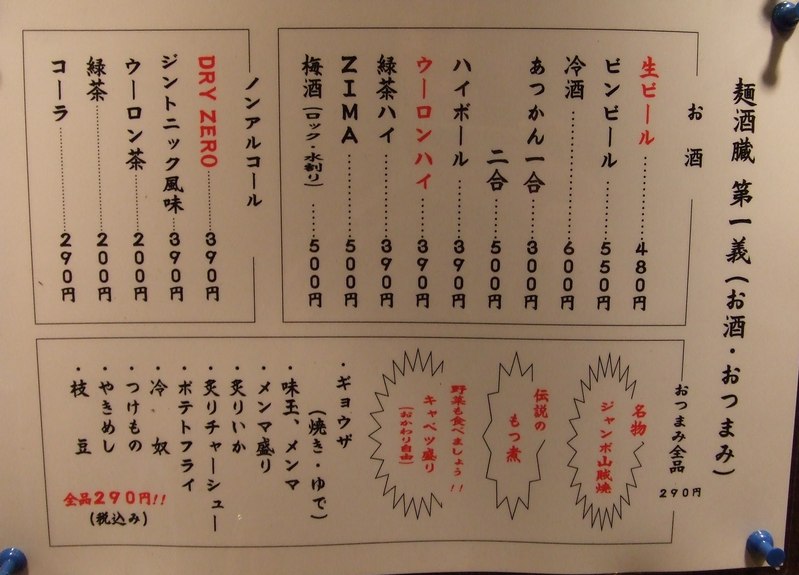 麺酒臓 第一義(お酒・おつまみ)
お酒
生ビール………480円
ビンビール……550円
冷酒……………600円
あつかん一合…300円
二合……500円
ハイボール……390円
ウーロンハイ…390円
緑茶ハイ………390円
ZIMA…………500円
梅酒(ロック・水割り)……500円
ノンアルコール
DRY ZERO………390円
ジントニック風味……390円
ウーロン茶………200円
緑茶……………200円
コーラ…………290円
おつまみ全品
290円
名物
ジャンボ山賊焼
伝説の
もつ煮
野菜も食べましょう!!
キャベツ盛り
(おかわり自由)
・ギョウザ
(焼き・ゆで)
・味玉、メンマ
・メンマ盛り
・炙りいか
・炙りチャーシュー
・ポテトフライ
・冷奴
・つけもの
・やきめし
・枝豆
全品290円!!
(税込み)